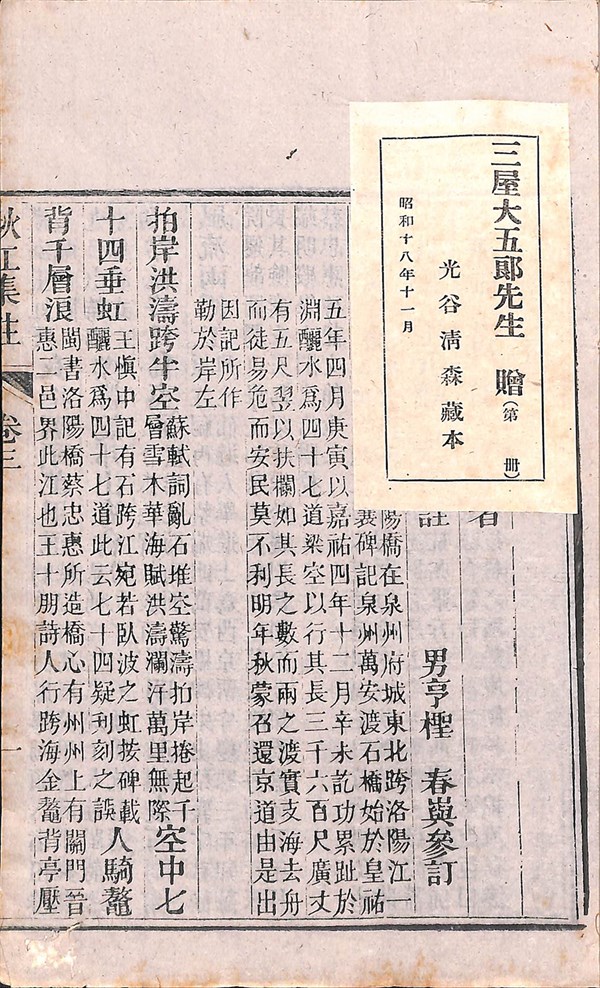 三屋大五郎先生 贈(第 冊)
光谷清森藏本
昭和十八年十一月
著
註
男亨樫 春輿參訂
陽橋在泉州府城東北跨洛陽江一
襄碑記泉州萬安渡石橋始於皇祐
五年四月庚寅以嘉祐四年十二月辛未訖功累趾於
淵釃水爲四十七道梁空以行其長三千六百尺廣丈
有五尺翌以扶欄如其長之數而兩之渡實支海去舟
而徒易危而安民莫不利明年秋蒙召還京道由是出
因記所作
勒於岸左
拍岸洪濤跨半空蘇軾詞亂石堆空驚濤拍岸捲起千
層雪木華海賦洪濤瀾汗萬里無際空中七
十四垂虹王愼中記有石跨江宛若臥波之虹按碑載
釃水爲四十七道此云七十四疑刋刻之誤人騎鼇
背千層浪閩書洛陽橋蔡忠惠所造橋心有州州上有關門晉
惠二邑界此江也王十朋詩人行跨海金鼇背亭壓
秋江集註 卷三 一